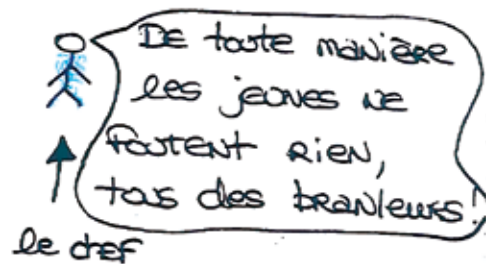 De toute manière
les jeunes ne
foutent rien,
tous des branleurs!
le chef